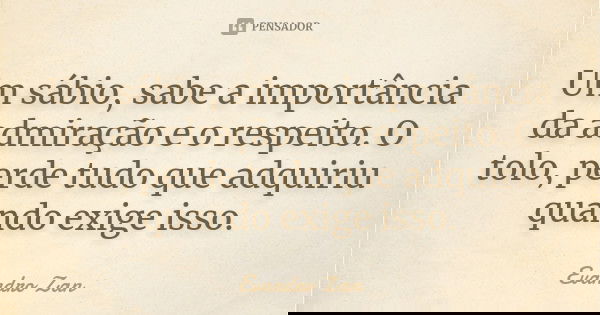 PENSADOR
Um sábio, sabe a importância
da admiração e o respeito. O
tolo, perde tudo que adquiriu
quando exige isso.
Evandro Zvan